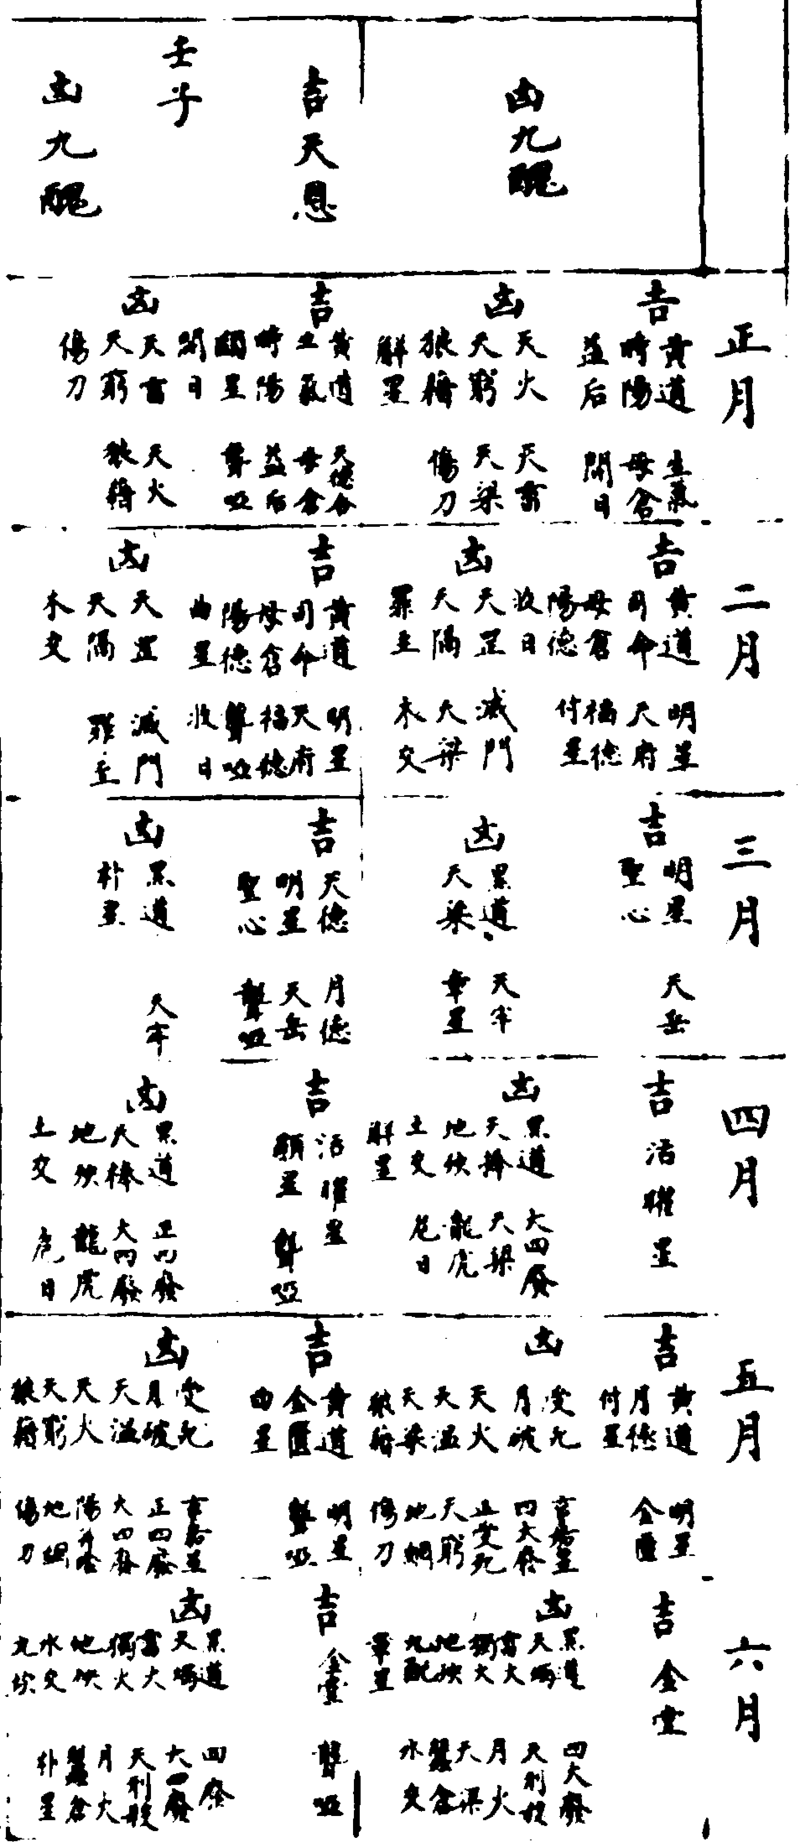 凶九醜
壬子
吉天恩
凶九醜
正月
吉
黃道 生氣
時陽 母倉
益后 開日
凶
天火 天富
天窮 天梁
狼藉 傷刀
解星
吉
黃道 天德合
生氣 母倉
時陽 益后
顯星 聾啞
開日
凶
天富 天火
天窮 狼藉
傷刀
二月
吉
黃道 明星
司命 天府
母倉 福德
陽德 付星
收日
凶
天罡 滅門
天隔 天梁
罪至 木交
吉
黃道 明星
司命 天府
母倉 福德
陽德 聾啞
曲星 收日
凶
天罡 滅門
天隔 罪至
木交
三月
吉
明星 天岳
聖心
凶
黑道 天牢
天梁 章星
吉
天德 月德
明星 天岳
聖心 聾啞
凶
黑道 天牢
朴星
四月
吉
活曜星
凶
黑道 大四廢
天棒 天梁
地殃 龍虎
土交 危日
解星
吉
活曜星
顯星 聾啞
凶
黑道 正四廢
天棒 大四廢
地殃 龍虎
土交 危日
五月
吉
黃道 明星
月德 金匱
付星
凶
受死
月破 四大廢
天火 正受死
天溫 天窮
天梁 地網
狼藉 傷刀
吉
黃道 明星
金匱 聾啞
曲星
凶
受死
月破 正四廢
天溫 大四廢
天火
天窮 地網
狼藉 傷刀
六月
吉
金堂
凶
黑道 四大廢
天燭
富火 月火
獨火 天梁
地殃
水交
章星
吉
金堂 聾啞
凶
黑道 四廢
大四廢
富火
獨火 月火
地殃
水交 朴星
九坎